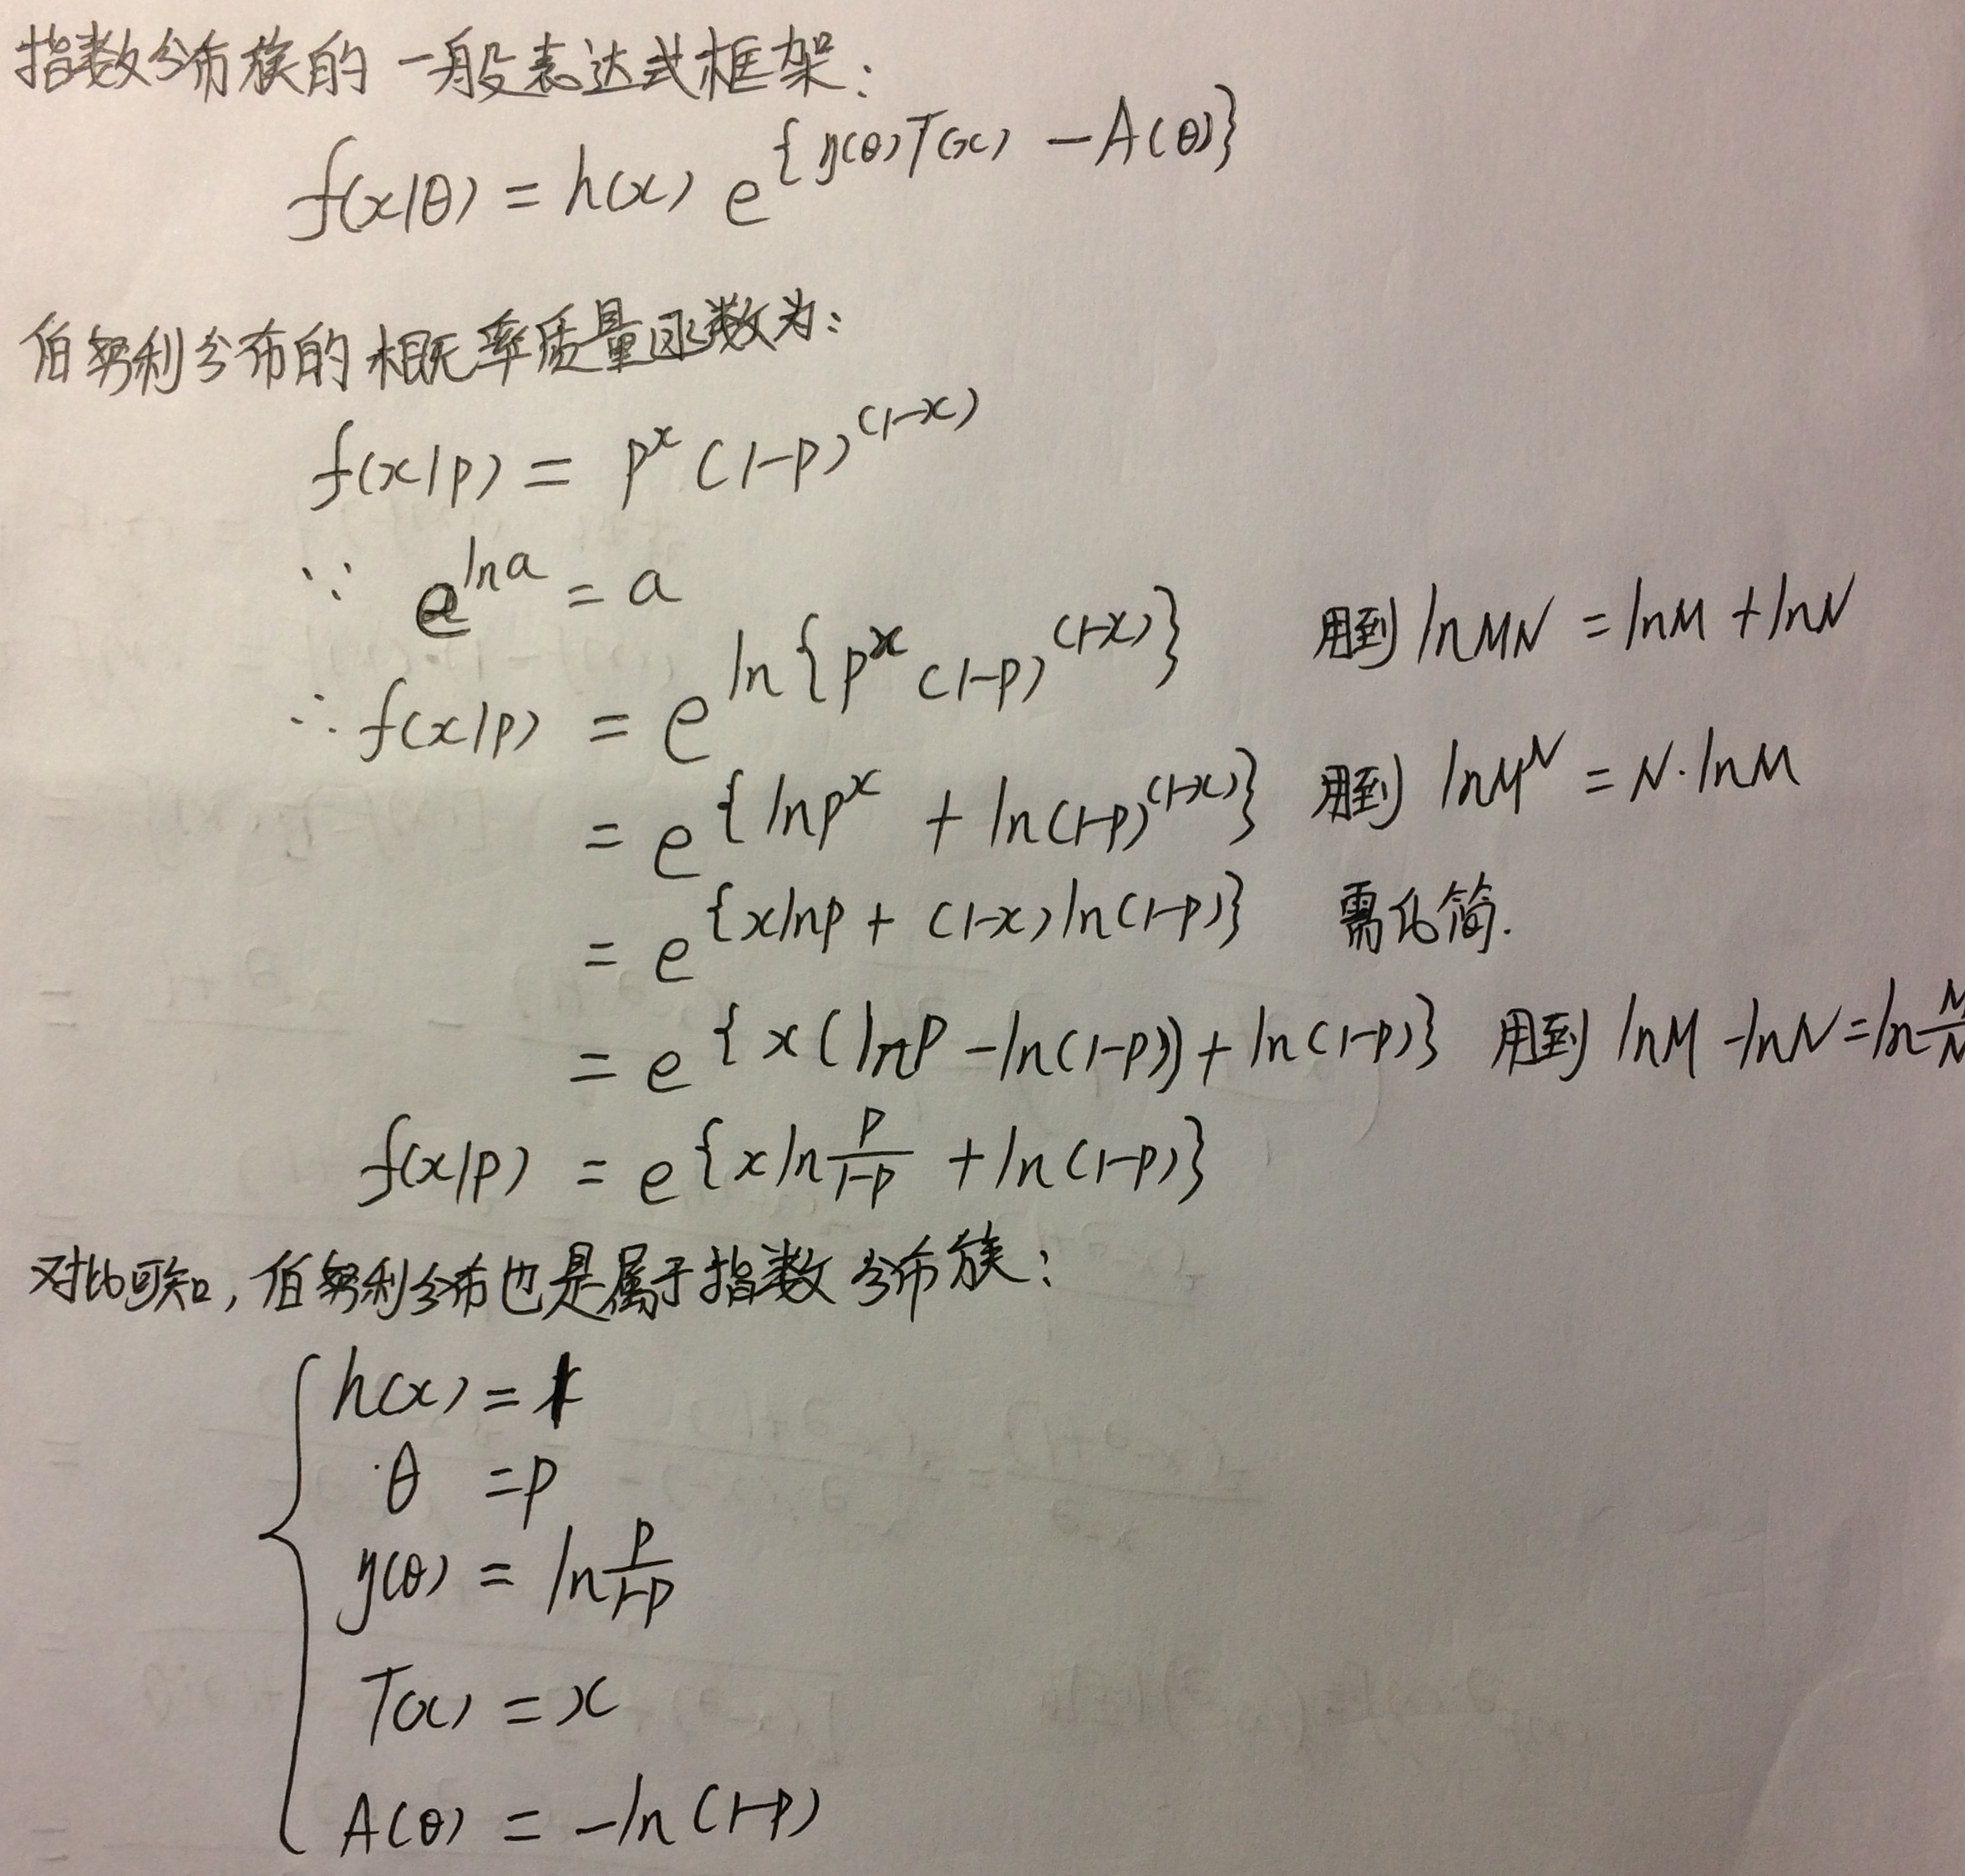 指数分布族的一般表达式框架:
f(x|θ) = h(x) e^{η(θ)T(x) - A(θ)}
伯努利分布的概率质量函数为:
f(x|p) = p^x (1-p)^(1-x)
∵ e^lna = a
用到 lnMN = lnM + lnN
∴ f(x|p) = e^ln{p^x (1-p)^(1-x)}
= e^{lnp^x + ln(1-p)^(1-x)} 用到 lnM^N = N·lnM
= e^{xlnp + (1-x)ln(1-p)} 需化简.
= e^{x(lnp - ln(1-p)) + ln(1-p)} 用到 lnM - lnN = ln M/N
f(x|p) = e{x ln p/(1-p) + ln(1-p)}
对比可知, 伯努利分布也是属于指数分布族:
h(x) = 1
θ = p
η(θ) = ln p/(1-p)
T(x) = x
A(θ) = -ln(1-p)